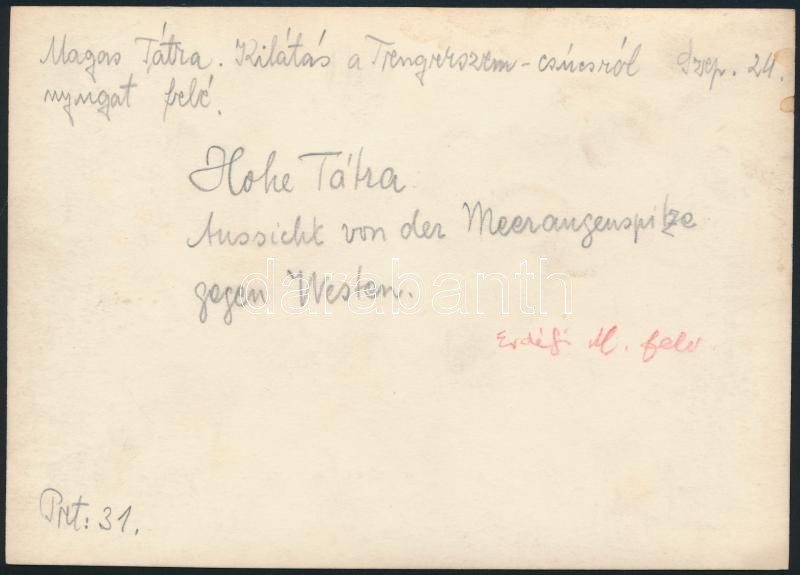 Magas Tátra. Kilátás a Tengerszem-csúcsról Szep. 24.
nyugat felé.
Hohe Tátra
Aussicht von der Meeraugenspitze
gegen Westen.
darabanth
Erdélyi M. felv
Prt: 31.